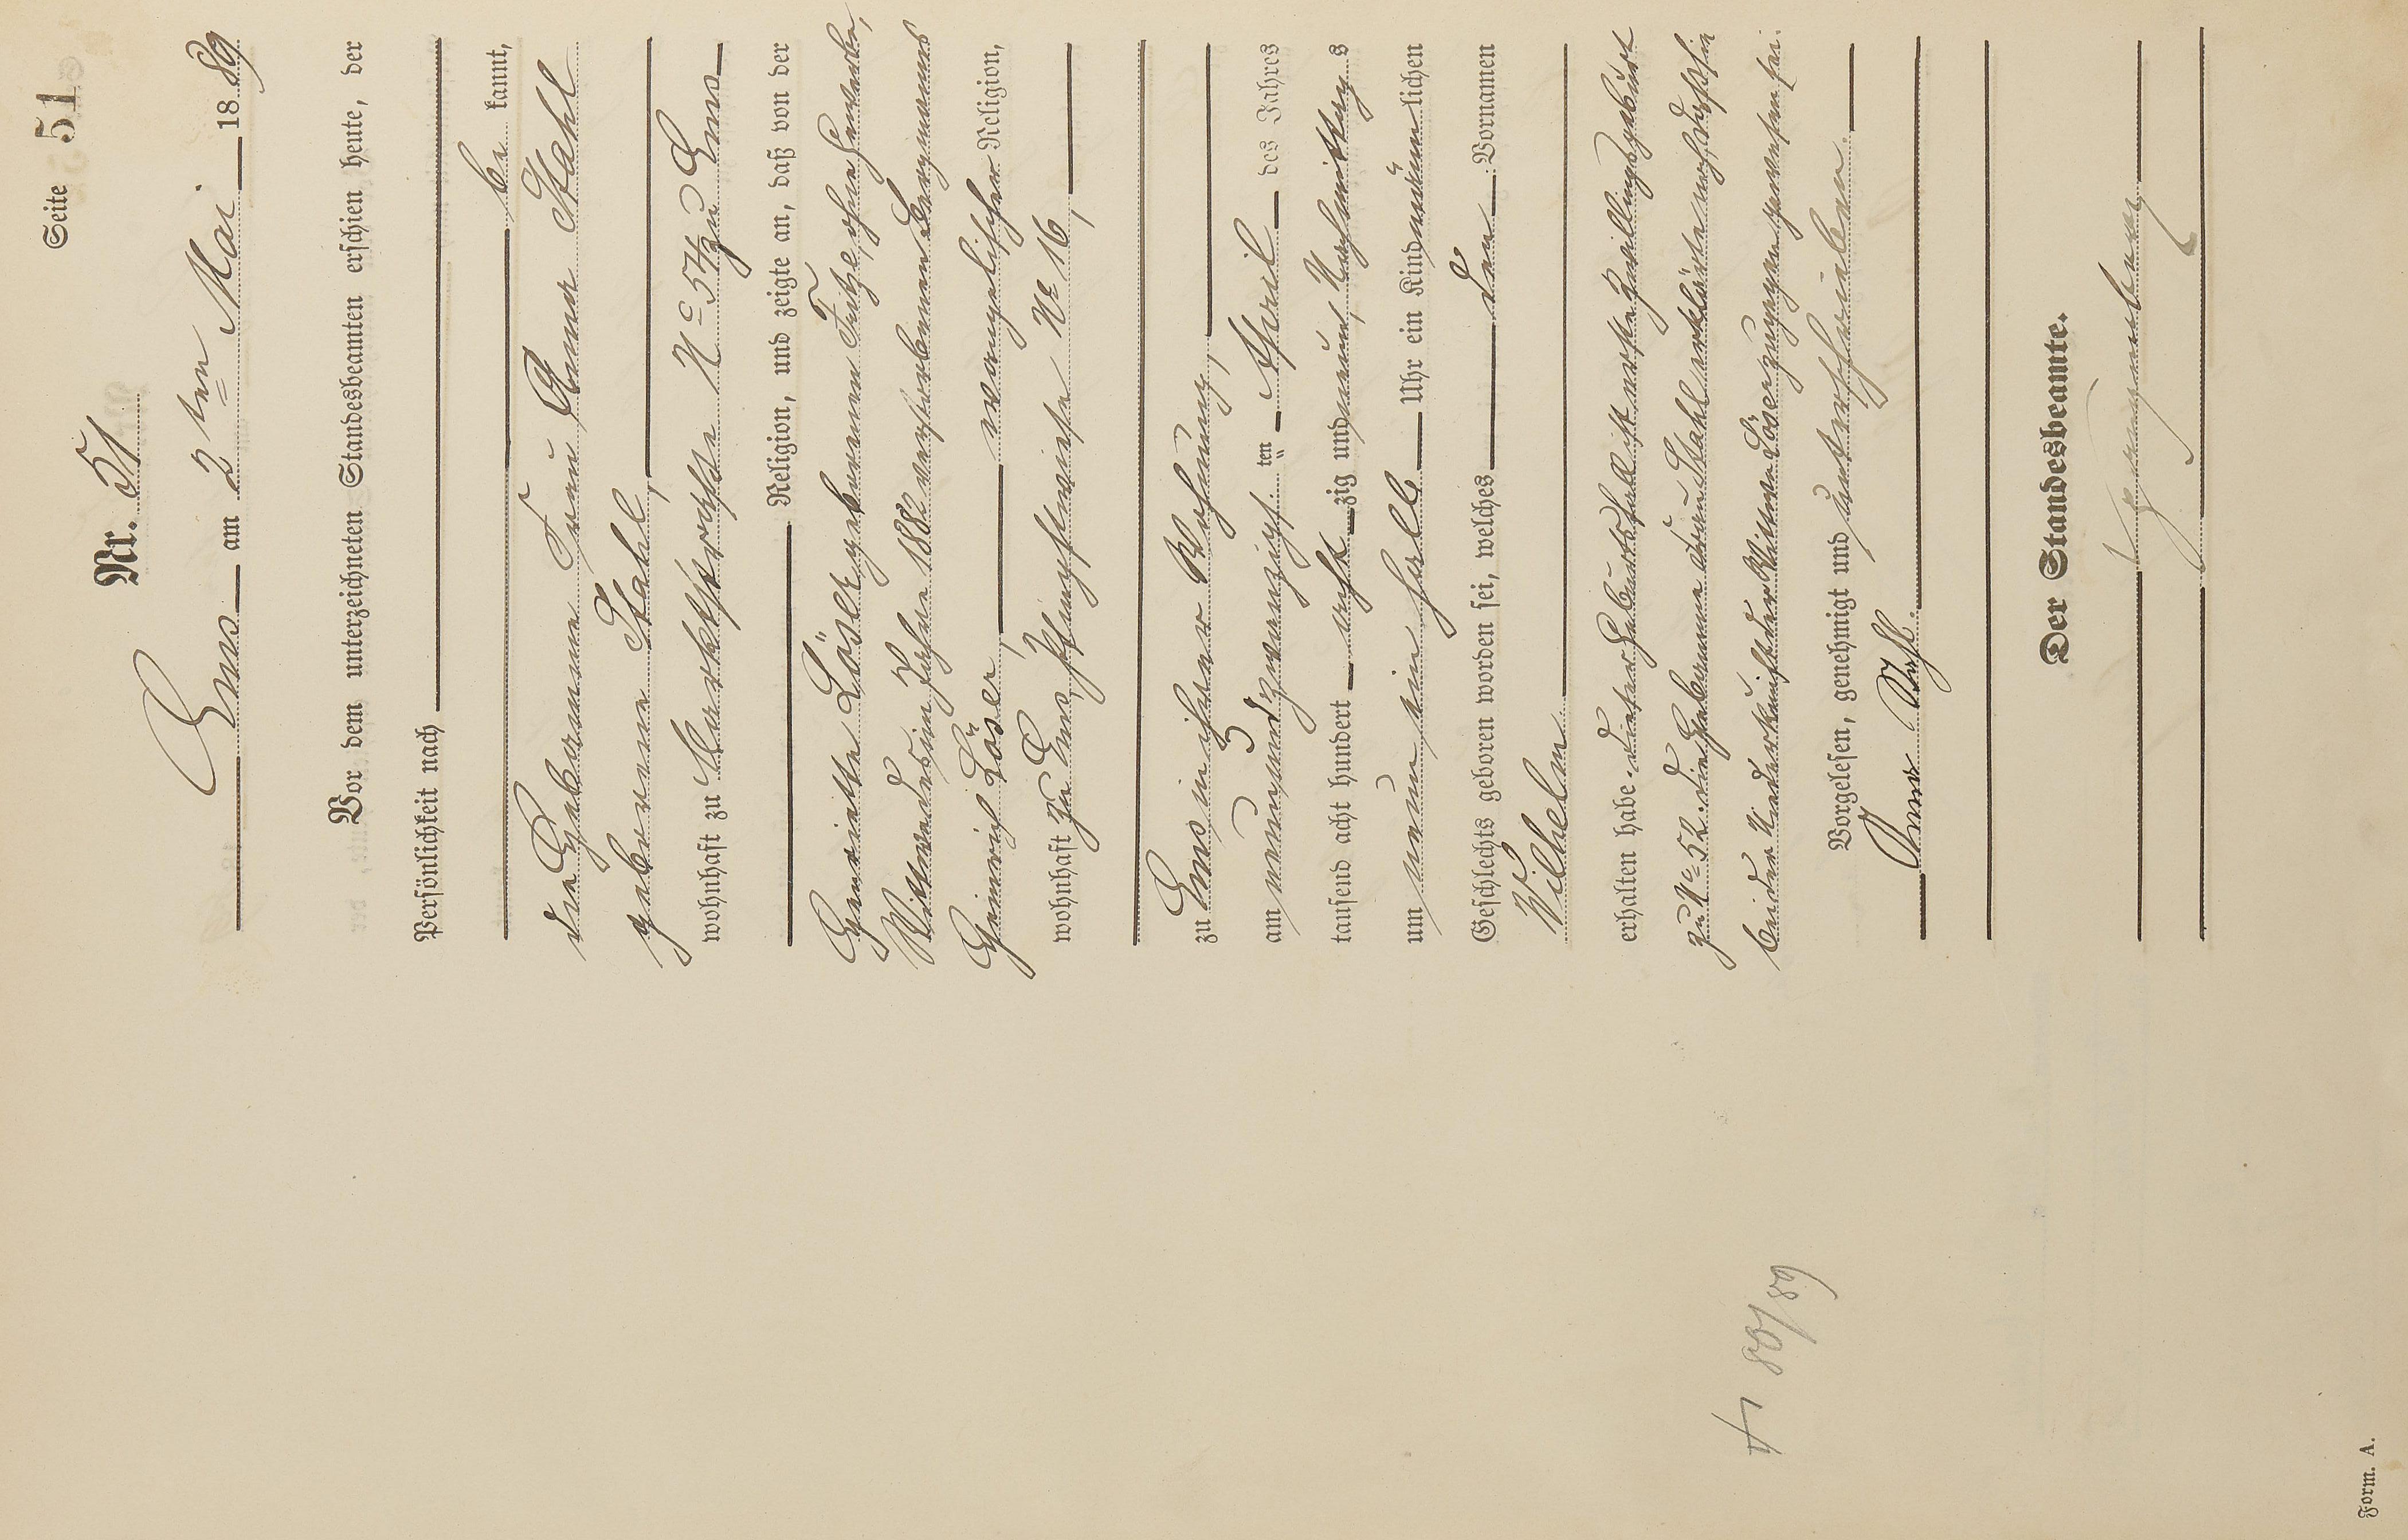 Seite 51
Nr. 51
Ems am 2ten Mai 1889
Vor dem unterzeichneten Standesbeamten erschien heute, der
Persönlichkeit nach
be kannt,
die Hebamme Frau Anna Stahl
geborene Stahl,
wohnhaft zu Marktstraße No 57 zu Ems
Religion, und zeigte an, daß von der
Henriette Löser geborenen ohne Gewerbe,
Wittwe des im Jahre 1888 verstorbenen Bergmanns
Heinrich Löser, evangelischer Religion,
wohnhaft zu Ems, Pfingstwiese No 16,
zu Ems in ihrer Wohnung,
am neunundzwanzigs ten April des Jahres
tausend acht hundert acht zig und neun, Nachmittags
um neun ein halb Uhr ein Kind männ lichen
Geschlechts geboren worden sei, welches den Vornamen
Wilhelm
erhalten habe. Dieser Geburtsfall ist erste Zwillingsgeburt
zu No 52. die Hebamme Frau Stahl erklärte noch daß sie
bei der Niederkunft der Wittwe Löser zugegen gewesen sei.
Vorgelesen, genehmigt und unterschrieben.
Anna Stahl.
Der Standesbeamte.
† 80/89
Form. A.